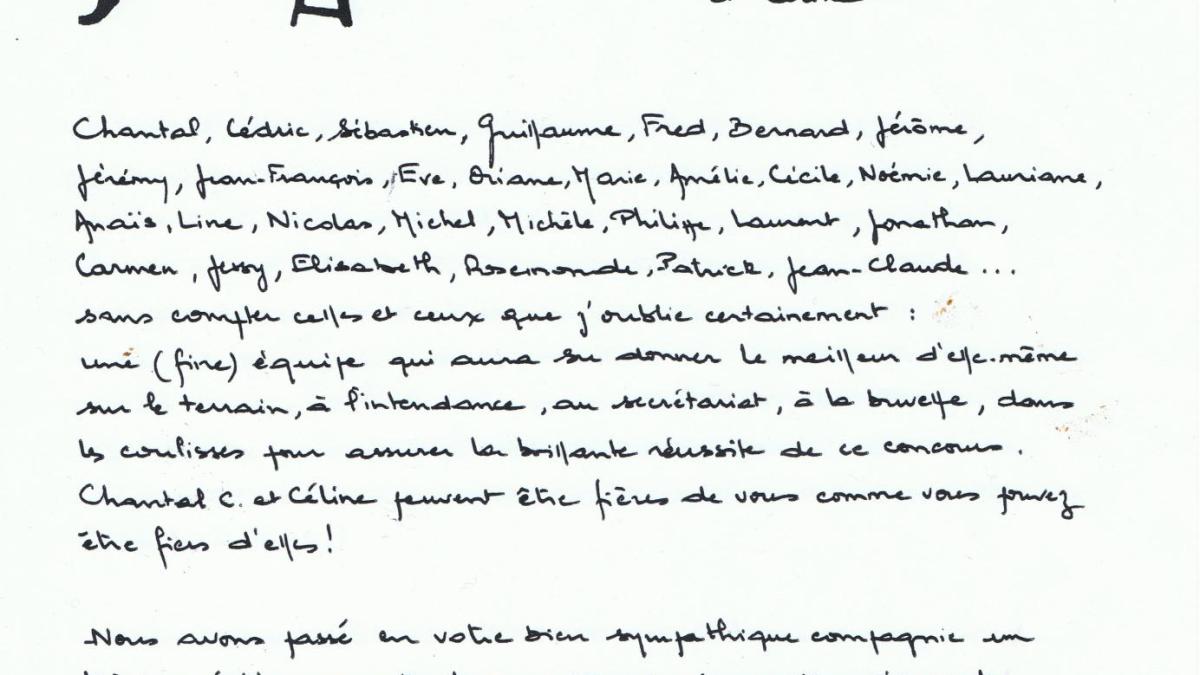 Chantal, Cédric, Sébastien, Guillaume, Fred, Bernard, Jérôme,
Jérémy, Jean-François, Eve, Oriane, Marie, Amélie, Cécile, Noémie, Lauriane,
Anaïs, Line, Nicolas, Michel, Michèle, Philippe, Laurent, Jonathan,
Carmen, Jessy, Elisabeth, Rosemonde, Patrick, Jean-Claude ...
sans compter celles et ceux que j'oublie certainement :
une (fine) équipe qui aura su donner le meilleur d'elle-même
sur le terrain, à l'intendance, au secrétariat, à la buvette, dans
les coulisses pour assurer la brillante réussite de ce concours.
Chantal C. et Céline peuvent être fières de vous comme vous pouvez
être fiers d'elles !
Nous avons passé en votre bien sympathique compagnie un